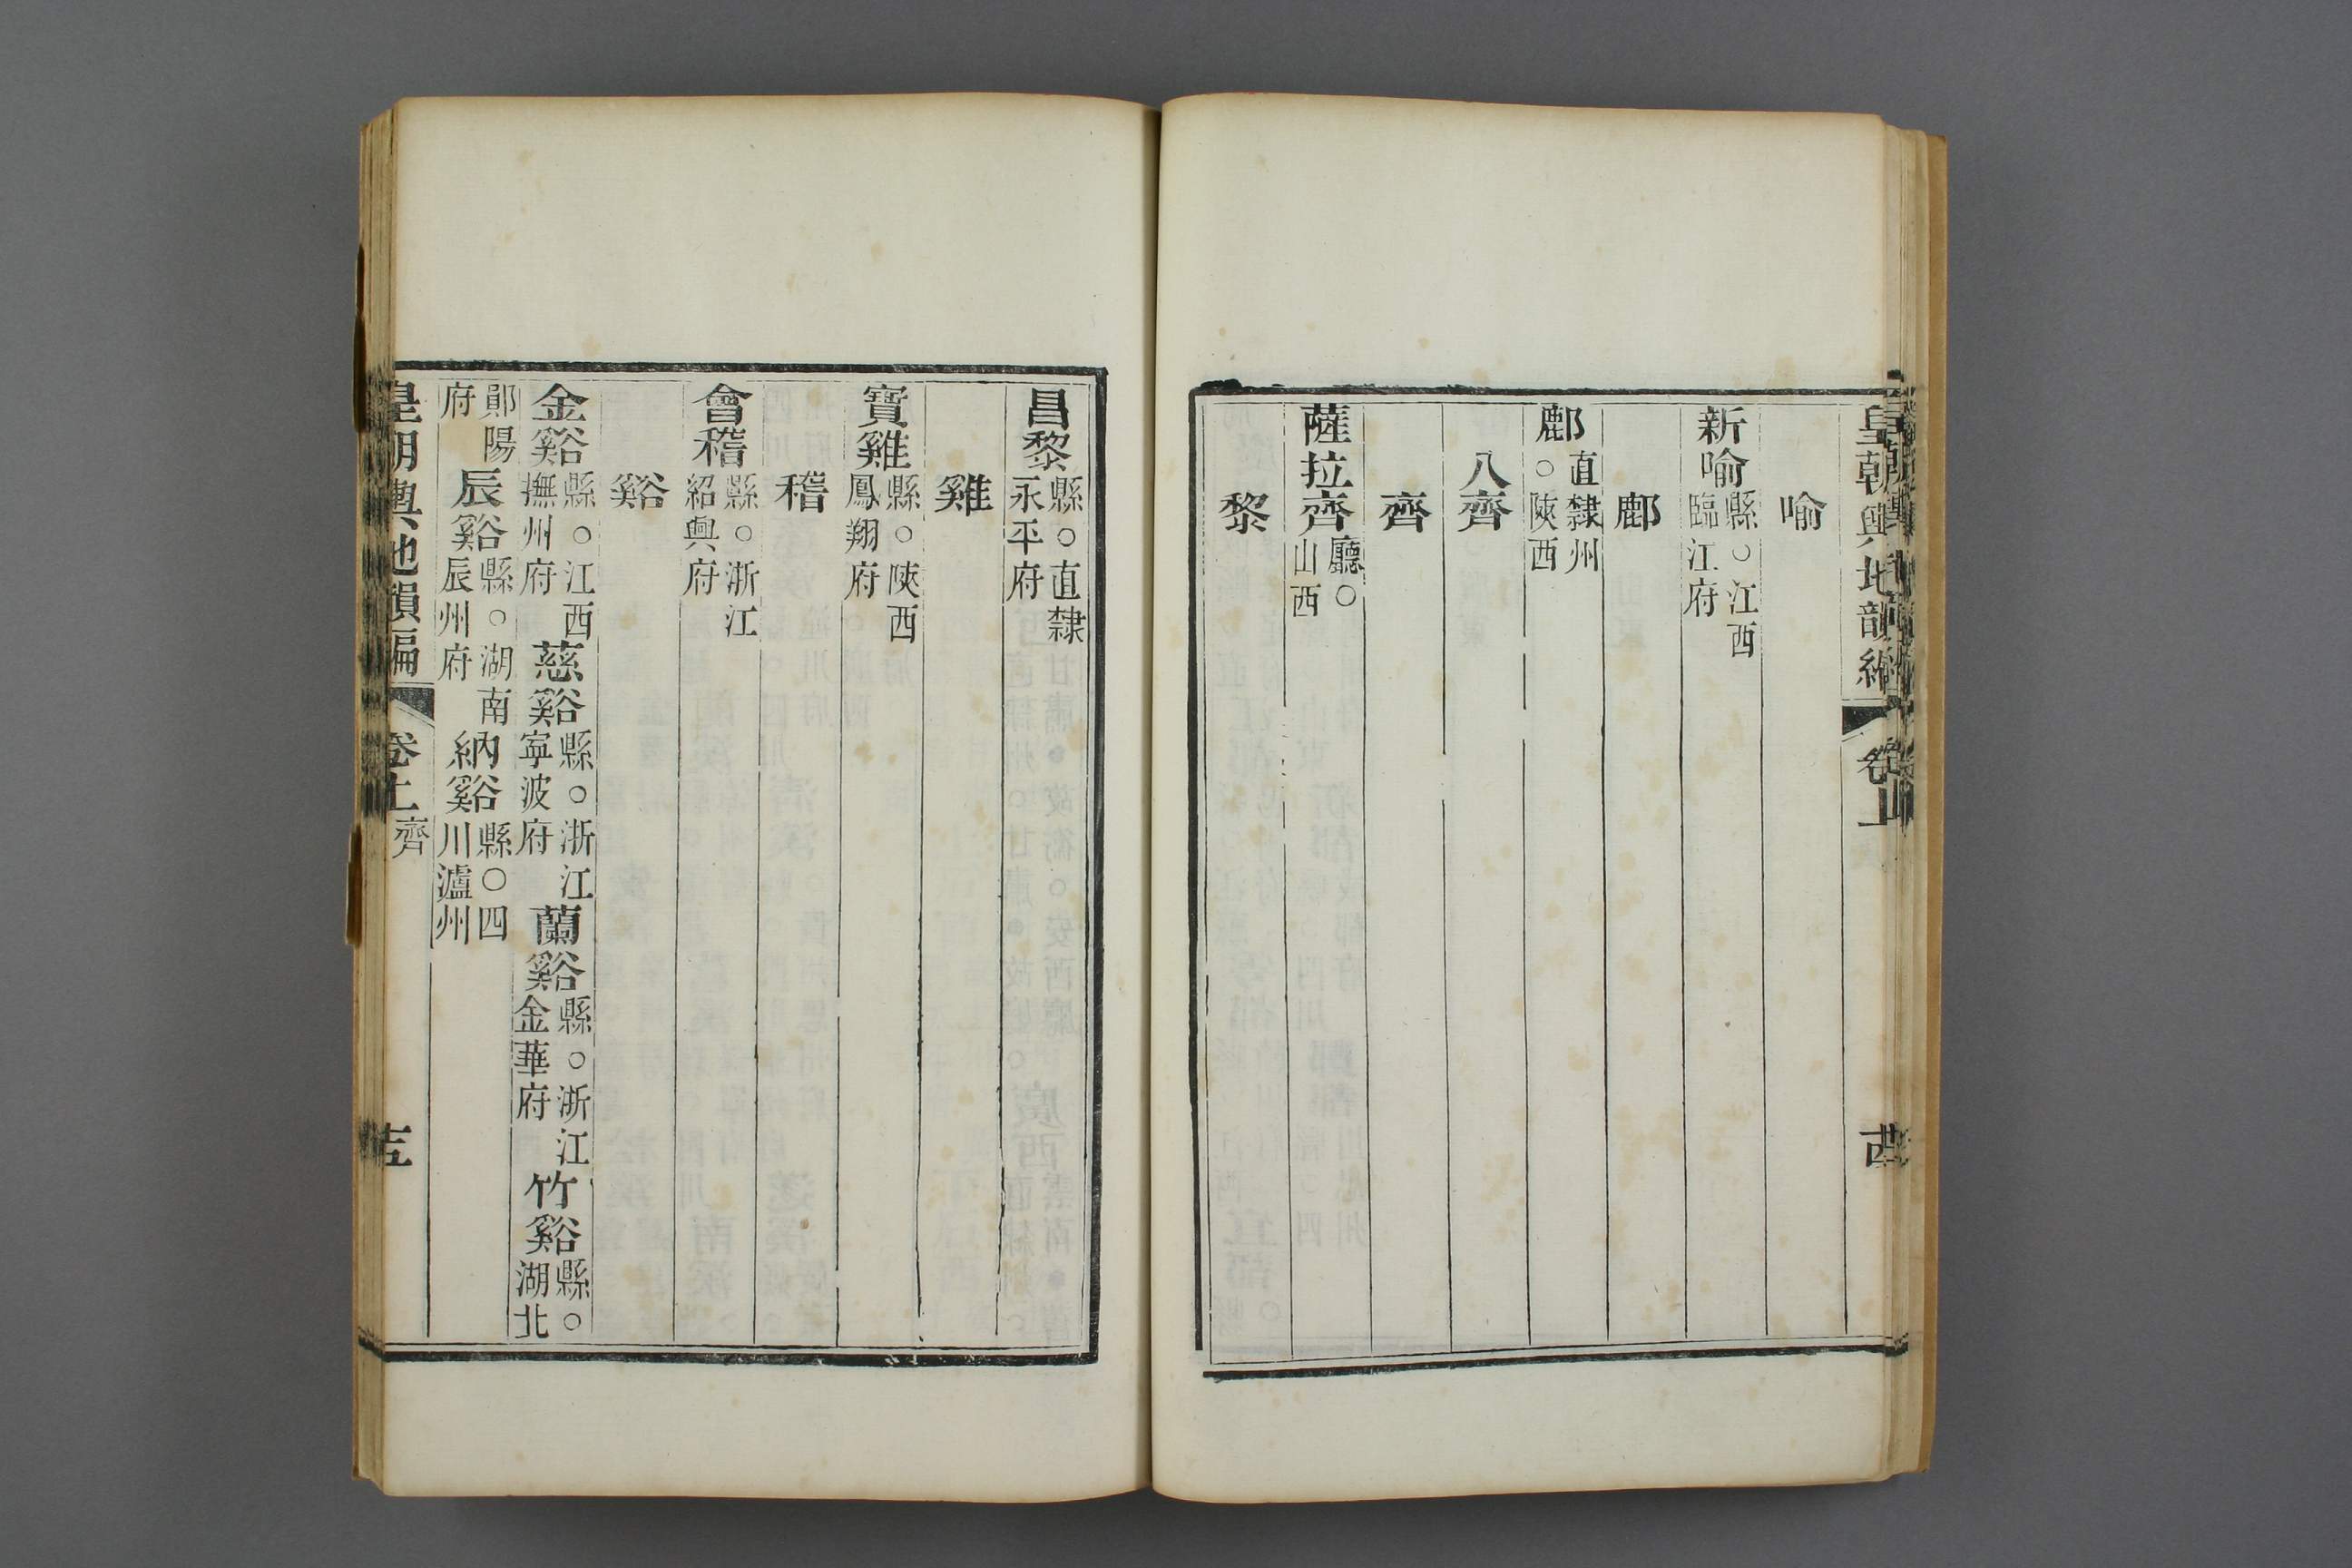 皇朝輿地韻編 卷上
喻
新喻縣○江西臨江府
鄜
鄜直隸州○陝西
八齊
齊
薩拉齊廳○山西
黎
昌黎縣○直隸永平府
雞
寶雞縣○陝西鳳翔府
稽
會稽縣○浙江紹興府
谿
金谿縣○江西撫州府慈谿縣○浙江寧波府蘭谿縣○浙江金華府竹谿縣○湖北
鄖陽府辰谿縣○湖南辰州府納谿縣○四川瀘州
皇朝輿地韻編 卷上 齊